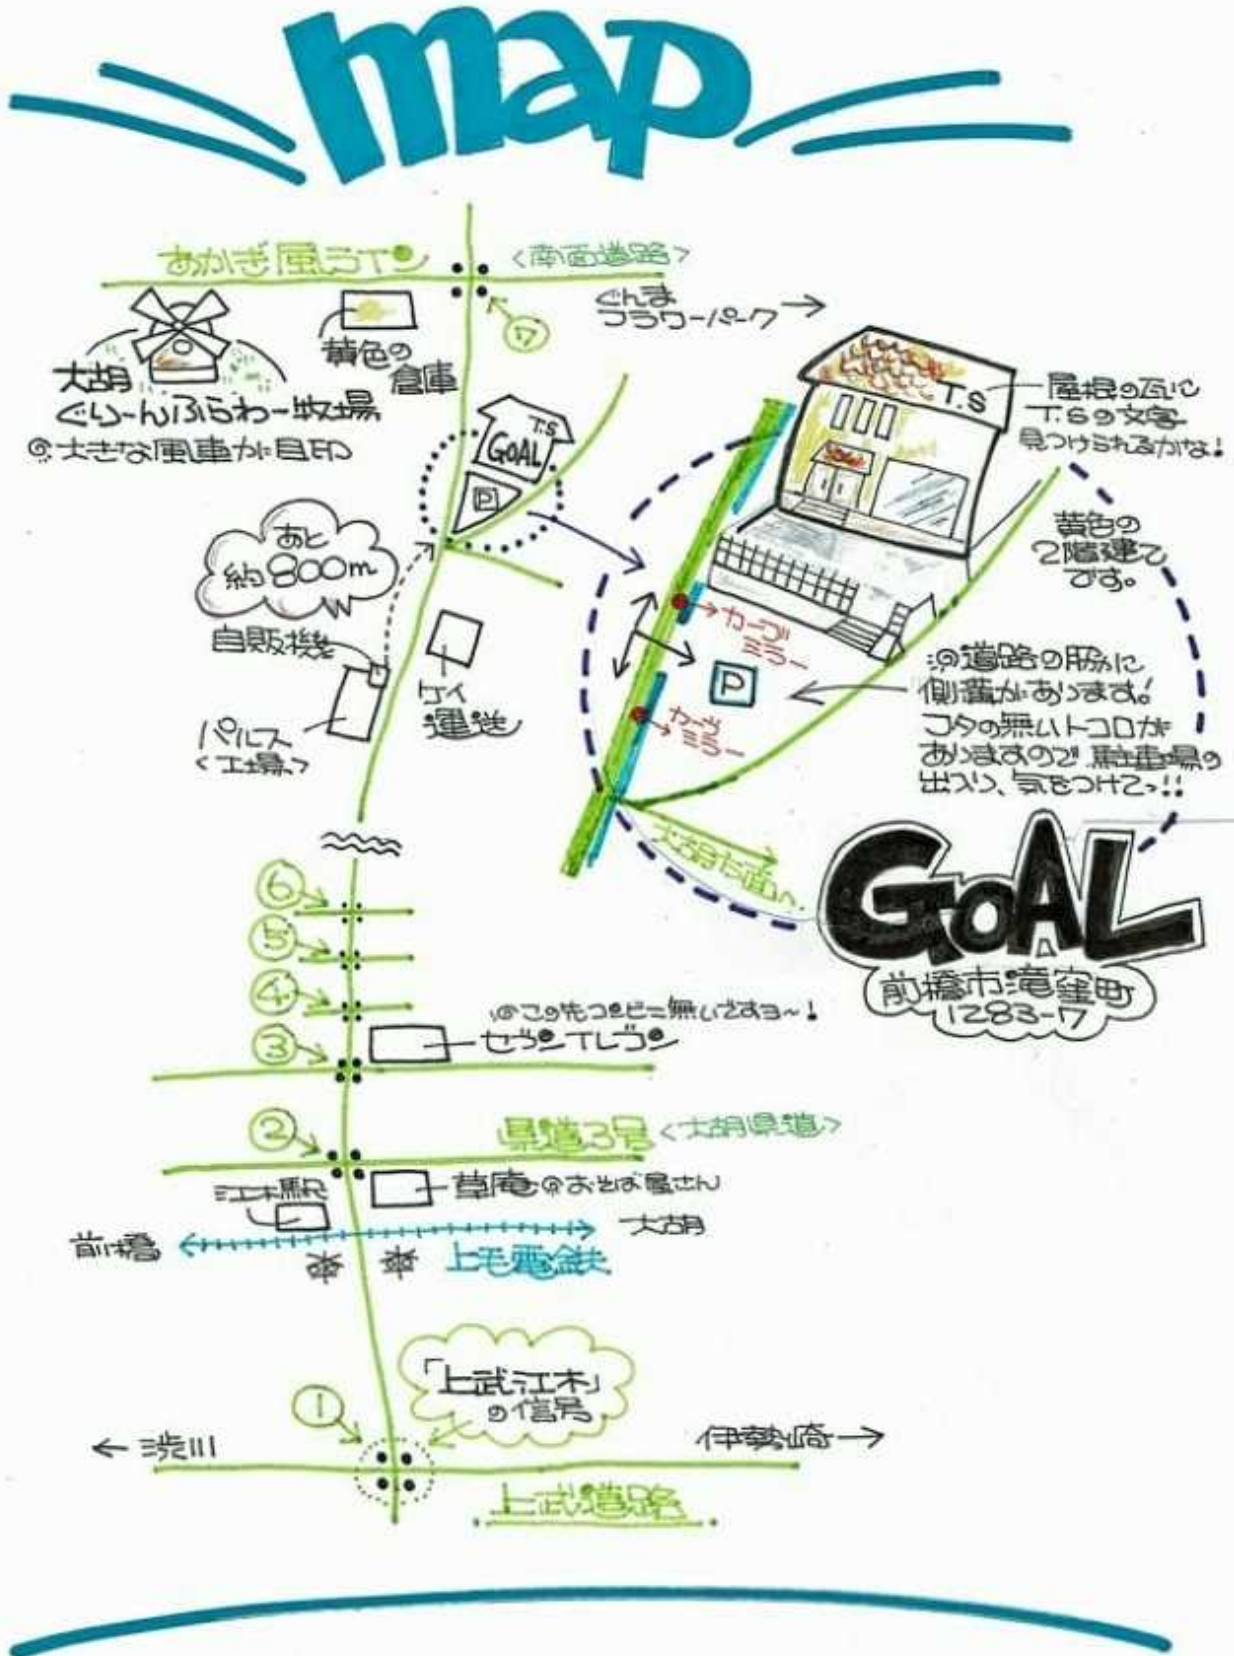 map
あかぎ風ライン
<南面道路>
ぐんま
フラワーパーク →
⑦
黄色の
倉庫
大胡
ぐりーんふらわー牧場
◎大きな風車が目印
T.S
GOAL
P
T.S
屋根の瓦に
T.Sの文字
見つけられるかな!
黄色の
2階建て
です。
あと
約800m
自販機
パルス
<工場>
ケイ
運送
カーブ
ミラー
P
カーブ
ミラー
※道路の脇に
側溝があります!
フタの無いトコロが
ありますので駐車場の
出入り、気をつけてっ!!
大胡方面へ
GOAL
前橋市滝窪町
1283-7
⑥
⑤
④
③
◎この先コンビニ無いですヨ~!
セブンイレブン
②
県道3号<大胡県道>
江木駅
草庵◎おそば屋さん
前橋
大胡
上毛電鉄
①
「上武江木」
の信号
← 渋川
伊勢崎 →
上武道路